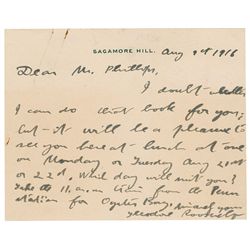 SAGAMORE HILL. Aug 9th 1916
Dear Mr. Phillips,
I doubt whether
I can do that book for you;
but it will be a pleasure to
see you here at lunch at one
on Monday or Tuesday Aug 21st
or 22d. What day will suit you?
Take the 11. a.m. train from the Penn
station for Oyster Bay. Sincerely yours
Theodore Roosevelt